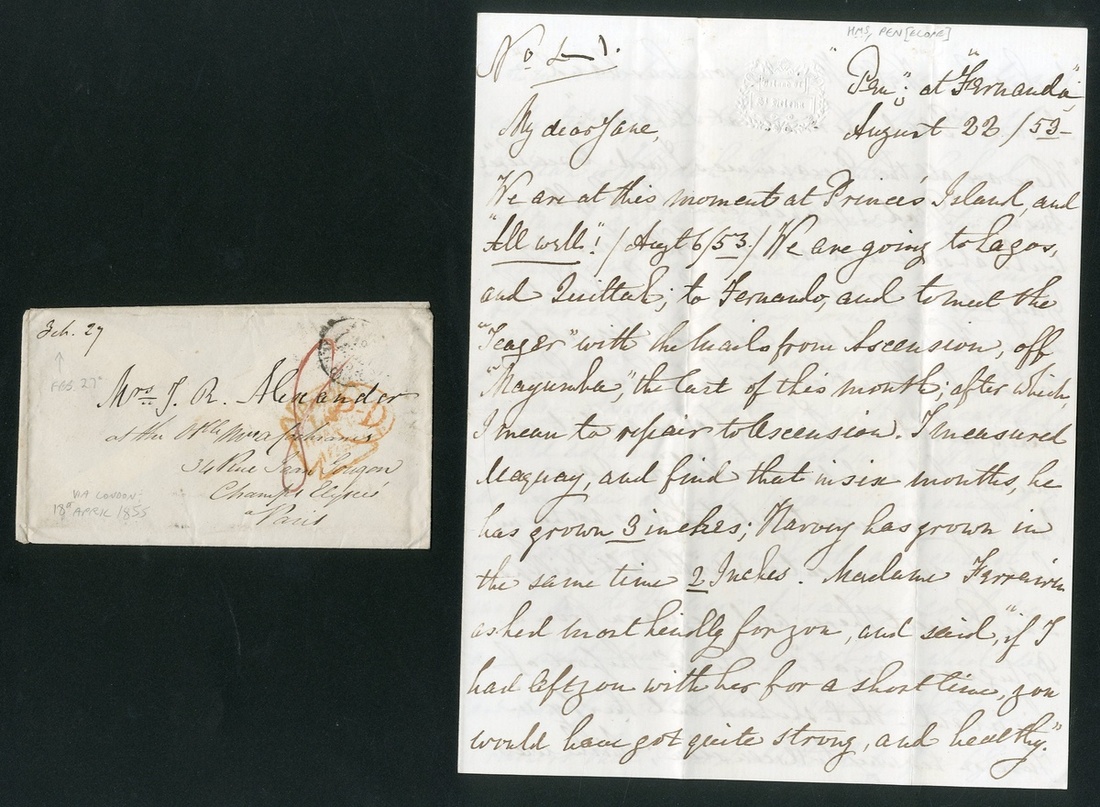 Feb. 27
FEB. 27
Mrs. J. R. Alexander
at the
34 Rue Jean Goujon
Champs Elysées
à Paris
P-D
VIA LONDON-
18 APRIL 1855
HMS, PEN[ELOPE]
No 41.
"Pen"; at "Fernando",
My dear Jane,
August 22/53-
We are at this moment at Princes Island, and
"All well"! / Augt 6/53 / We are going to Lagos,
and Quittah; to Fernando, and to meet the
"Teager" with the Mails from Ascension, off
"Mayumba", the last of this month; after which,
I mean to repair to Ascension. I measured
Maquay, and find that in six months, he
has grown 3 inches; Harvey has grown in
the same time 2 Inches. Madame
asked most kindly for you, and said, "if I
had left you with her for a short time, you
would have got quite strong, and healthy."